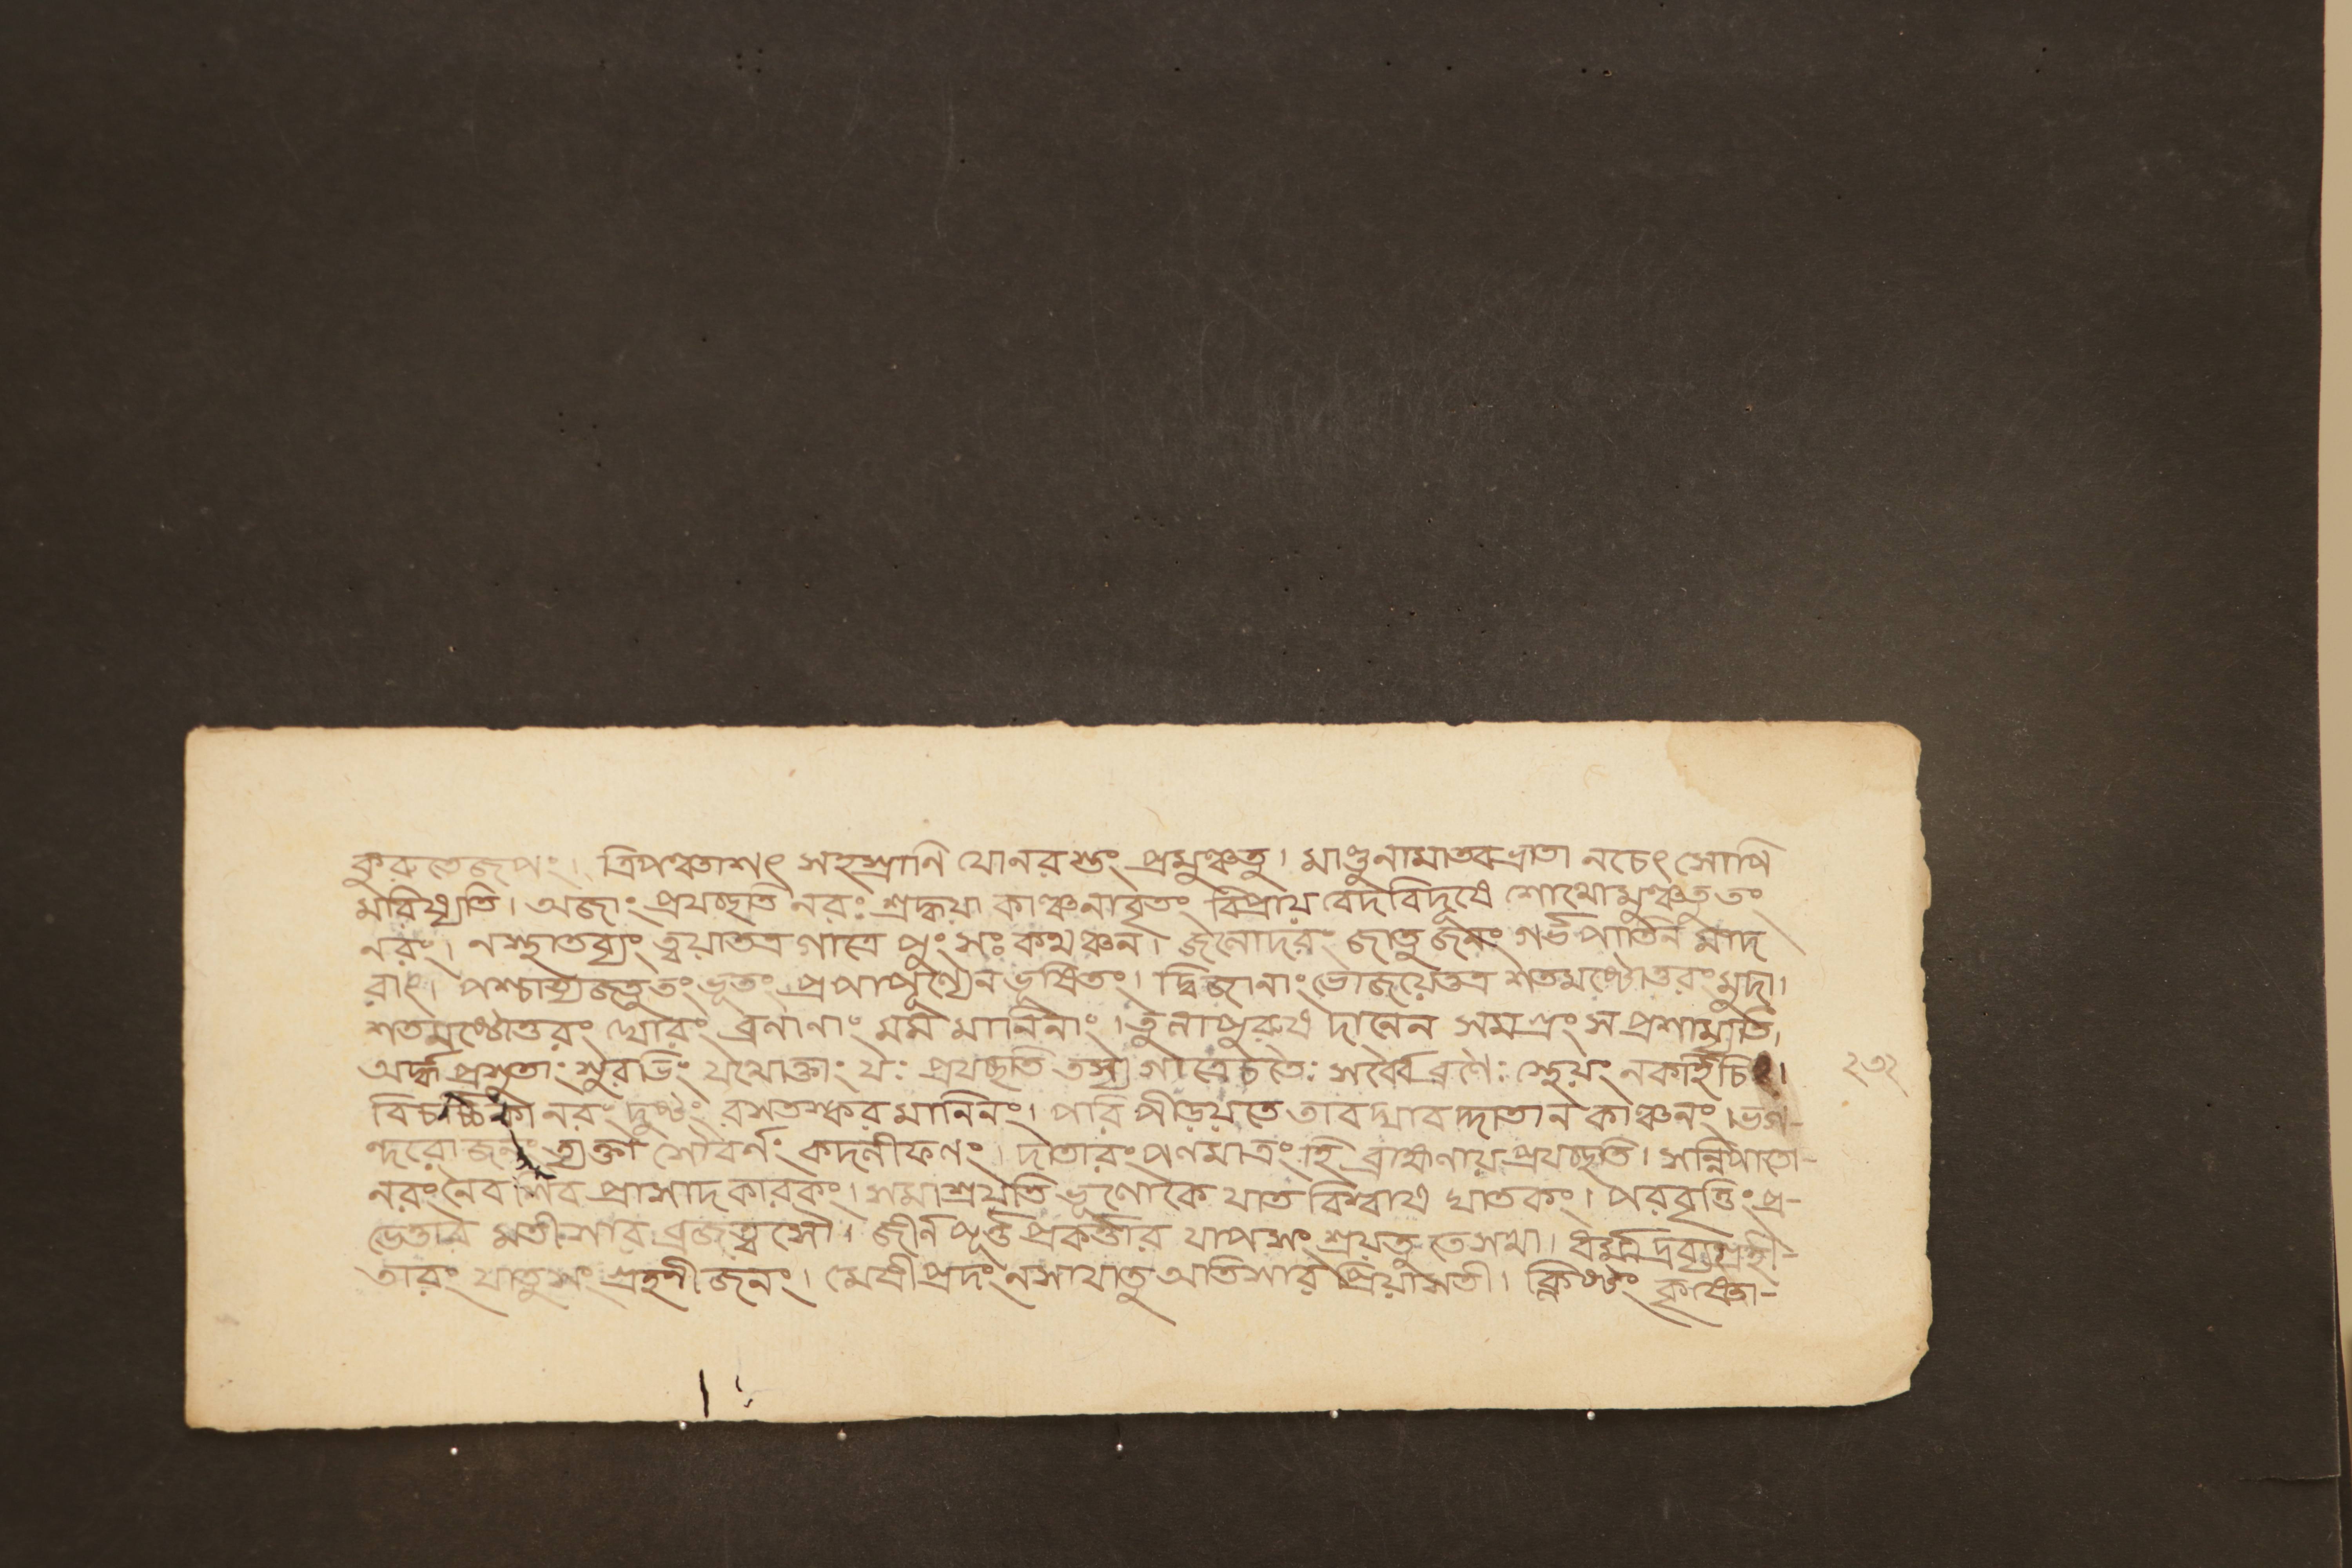 কুরুতেজপং। ত্রিপঞ্চাশৎ সহস্রানি যোনরস্তং প্রমুঞ্চতু। মাণ্ডুনামাতবভ্রাতা নচেৎ সোপি
মরিষ্যতি। অজাং প্রযচ্ছতি নরঃ শ্রদ্ধয়া কাঞ্চনাবৃতং বিপ্রায় বেদবিদুষে শোথোমুঞ্চতু তং
নরং। নস্থাতব্যং ত্বয়াতত্র গাত্রে পুংসঃ কথঞ্চন। জলোদরং জাতু জনং গর্ভপাতিন মাদ
রাৎ। পশ্চাত্যজতু তং ভূতং প্রপাপুণ্যেন ভূষিতং। দ্বিজানাং ভোজয়েত্তত্র শতমষ্টোত্তরং মুদা।
শতমষ্টোত্তরং ঘোরং ব্রণানাং মর্ম মালিনাং। তুলাপুরুষ দানেন সমগ্রং সপ্রশাম্যতি,
অর্দ্ধপ্রসুতাং সুরভিং যথোক্তাং যঃ প্রযচ্ছতি তস্য গাত্রে চতৈঃ সর্ব্বৈ ব্রণৈঃ স্থেয়ং নকর্হিচিৎ।
বিচর্চ্চিকা নরং দুষ্টং রসতস্কর মানিনং। পরি পীড়য়তে তাব দ্যাব দ্দাতা ন কাঞ্চনং। ভগ-
ন্দরো জনং ত্যক্তা সৌবর্ণং কদলীফলং। দাতারং পলমাত্রং হি ব্রাহ্মণায় প্রযচ্ছতি। সন্নিপাতো-
নরং নৈব শিব প্রাসাদ কারকং। সমাশ্রয়তি ভূলোকে যাত বিশ্বাষ ঘাতকং। পরবৃত্তিং প্র-
ভেত্তার মতীসার ব্রজত্বসৌ। জীর্ণ পূর্ত্ত প্রকর্ত্তার যাপসং শ্রয়তু তেসখা। ধর্ম্ম দ্রব্যগ্রহী-
তারং যাতু সং গ্রহনী জনং। মেষী প্রদং নসাযাতু অতিসার প্রিয়াসতী। ক্লিষ্টং কৃষ্ণো-
২৩২